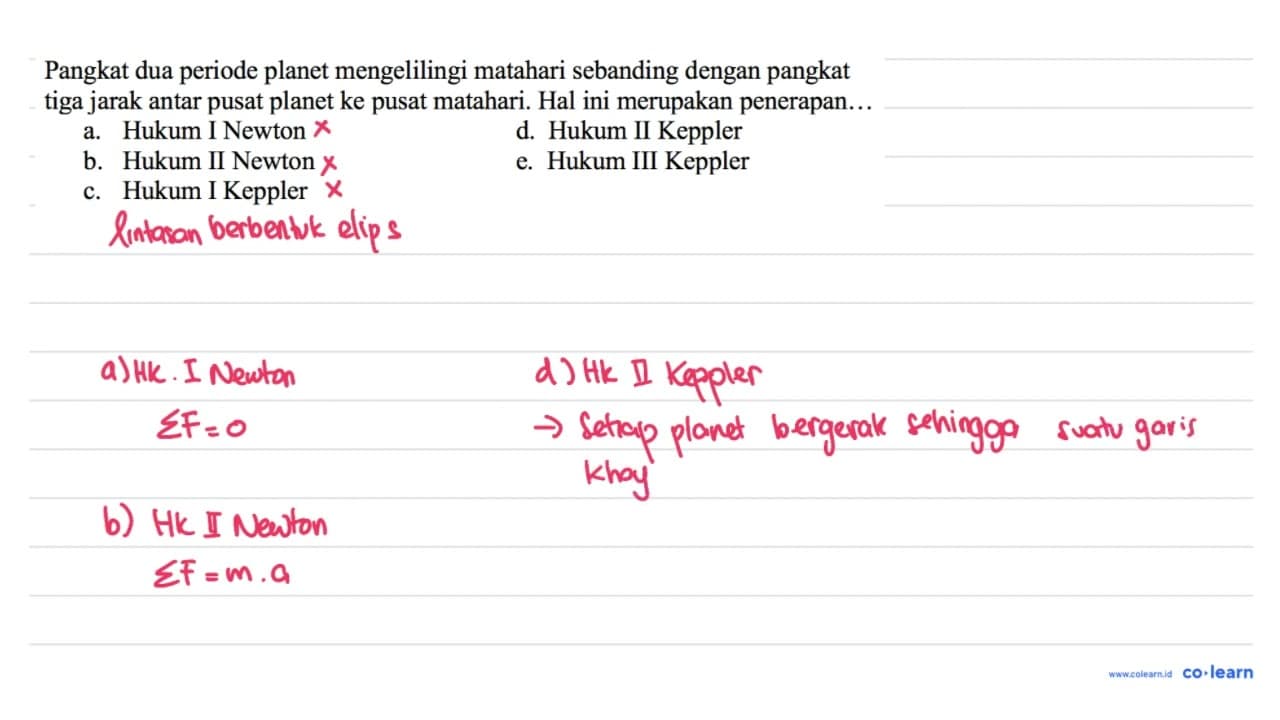 Pangkat dua periode planet mengelilingi matahari sebanding dengan pangkat
tiga jarak antar pusat planet ke pusat matahari. Hal ini merupakan penerapan...
a. Hukum I Newton x
d. Hukum II Keppler
b. Hukum II Newton x
e. Hukum III Keppler
c. Hukum I Keppler x
lintasan berbentuk elips
a) Hk. I Newton
ΣF = 0
b) Hk II Newton
ΣF = m . a
d) Hk II Keppler
→ Setiap planet bergerak sehingga suatu garis
khay
www.colearn.id co•learn